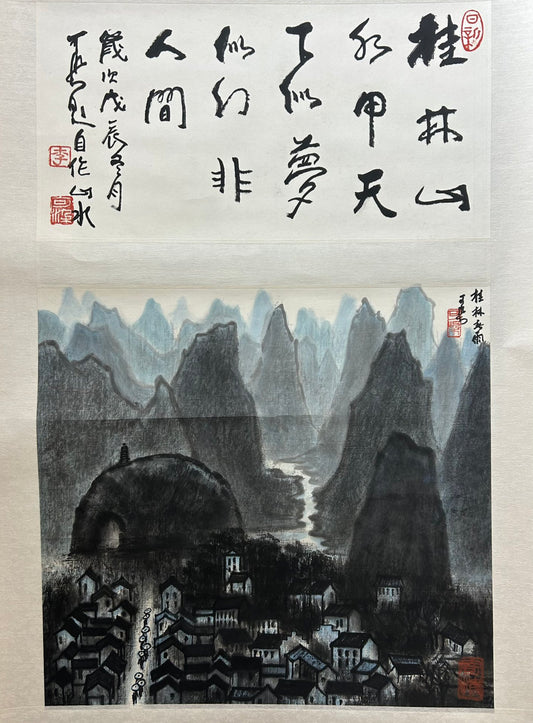 桂林山
水甲天
下似夢
似幻非
人間
歲次戊辰冬月
可染題自作山水
李
可染
桂林春雨
可染